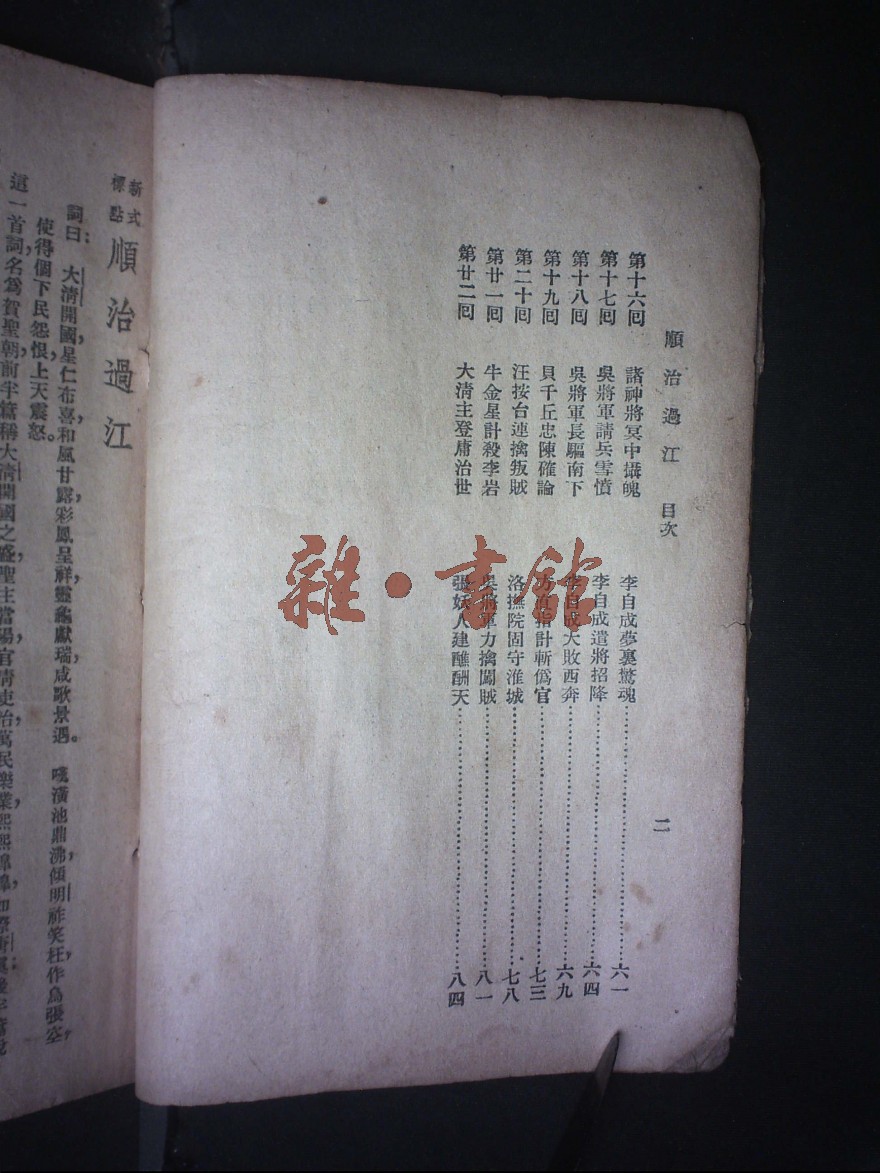 順治過江 目次 二
第十六囘 諸神將冥中攝魄 李自成夢裏驚魂 六一
第十七囘 吳將軍請兵雪憤 李自成遣將招降 六四
第十八囘 吳將軍長驅南下 李自成大敗西奔 六九
第十九囘 貝千丘忠陳確論 方直指計斬僞官 七三
第二十囘 汪按台連擒叛賊 洛撫院固守淮城 七八
第廿一囘 牛金星計殺李岩 吳將軍力擒闖賊 八一
第廿二囘 大淸主登庸治世 張妖人建醮酬天 八四
雜·書館
新式標點 順治過江
詞曰：大淸開國，星仁布喜，和風甘露，彩鳳呈祥，靈龜獻瑞，咸歌景遇。 嘆潢池鼎沸，傾明祚，笑枉作爲張空，
使得個下民怨恨，上天震怒。
這一首詞，名爲賀聖朝，前半篇稱大淸開國之盛，聖主當陽，官淸吏治，萬民樂業，熙熙